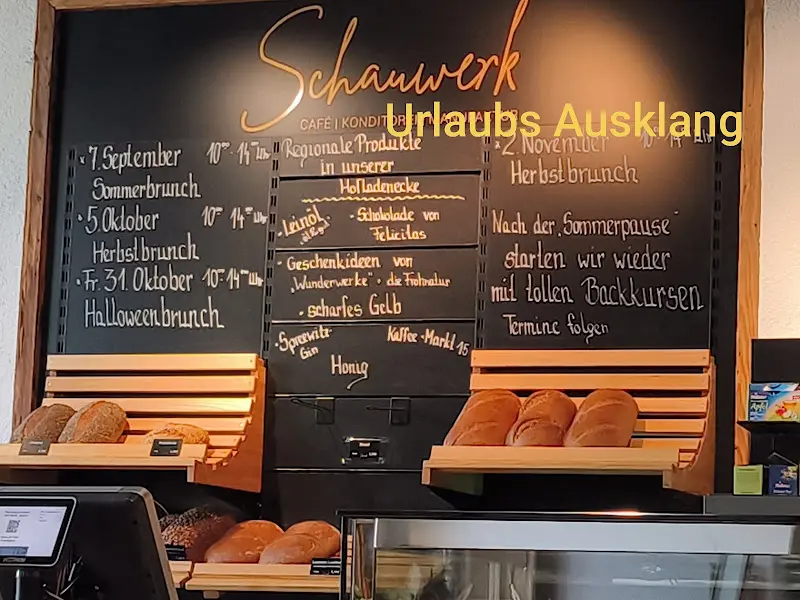 Schauwerk
CAFÉ | KONDITOREI
Urlaubs Ausklang
* 7. September 10⁰⁰-14⁰⁰ Uhr
Sommerbrunch
• 5. Oktober 10⁰⁰-14⁰⁰ Uhr
Herbstbrunch
• Fr. 31. Oktober 10⁰⁰-14⁰⁰ Uhr
Halloweenbrunch
Regionale Produkte
in unserer
Hofladenecke
- Leinöl
- Schokolade von
Felicitas
- Geschenkideen von
"Wunderwerke" + die Frohnatur
- scharfes Gelb
- Spreewitz
Gin
Kaffee - Markt 15
Honig
* 2. November
Herbstbrunch
Nach der "Sommerpause"
starten wir wieder
mit tollen Backkursen
Termine folgen